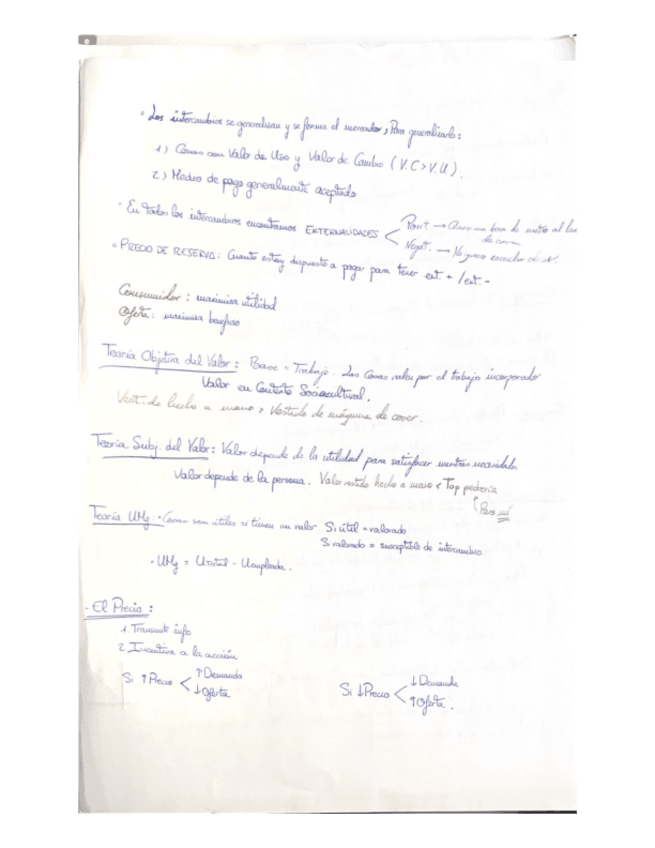 • Los intercambios se generalizan y se forma el mercado, Para generalizarlo:
1) Cosas con Valor de Uso y Valor de Cambio (V.C > V.U).
2) Medio de pago generalmente aceptado
• En todos los intercambios encontramos EXTERNALIDADES < Posit. → boca de metro al
de casa
Negat. → No quiero escuchar
• PRECIO DE RESERVA: Cuanto estoy dispuesto a pagar para tener ext. + / ext. -
Consumidor: maximiza utilidad
Oferta: maximiza beneficio
Teoría Objetiva del Valor: Base = Trabajo. Las Cosas valen por el trabajo incorporado
Valor en Contexto Sociocultural.
Vestido hecho a mano > Vestido de máquina de coser.
Teoría Subj. del Valor: Valor depende de la utilidad para satisfacer
Valor depende de la persona. Valor vestido hecho a mano < Top pedrería
Para mí
Teoría UMg: • Cosas son útiles si tienen un valor Si útil = valorado
Si valorado = susceptible de intercambio
• UMg = Utotal - Uampliada.
- El Precio:
1. Transmite info
2. Incentiva a la acción
Si ↑ Precio < ↑ Demanda
↓ Oferta
Si ↓ Precio < ↓ Demanda
↑ Oferta.